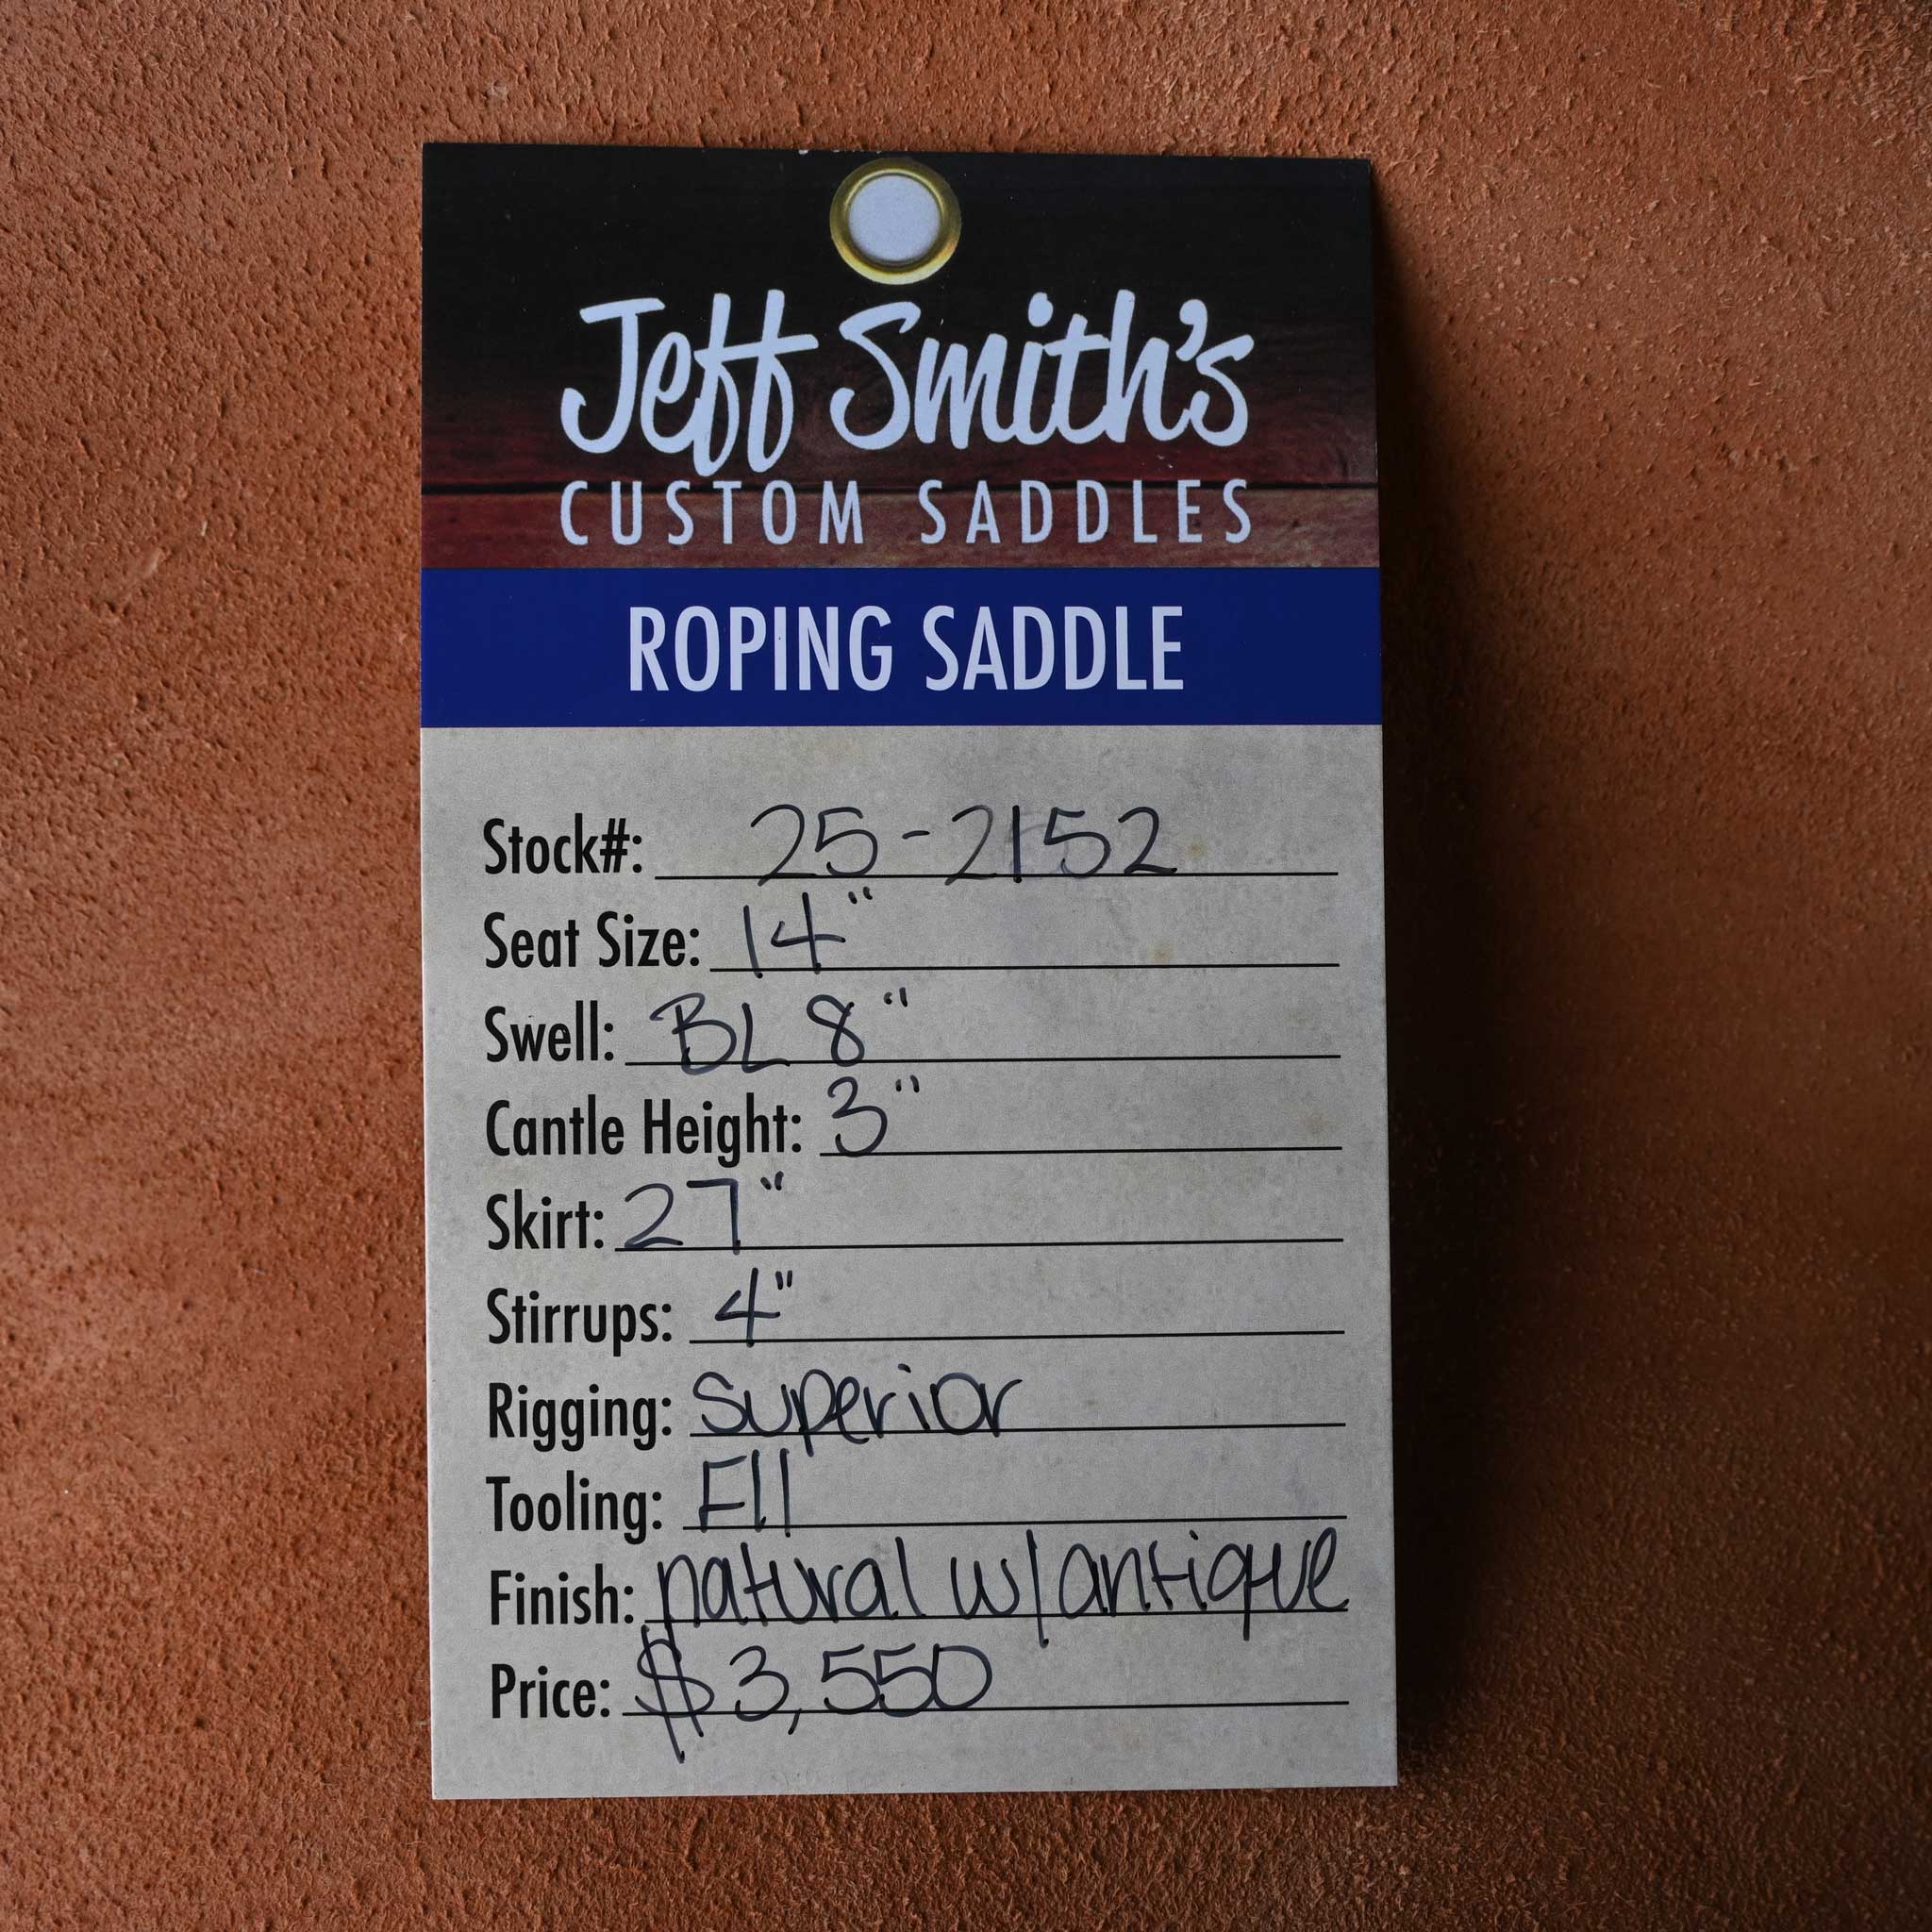 Jeff Smith's
CUSTOM SADDLES
ROPING SADDLE
Stock#: 25-2152
Seat Size: 14"
Swell: BL 8"
Cantle Height: 3"
Skirt: 27"
Stirrups: 4"
Rigging: Superior
Tooling: F11
Finish: natural w/antique
Price: $3,550